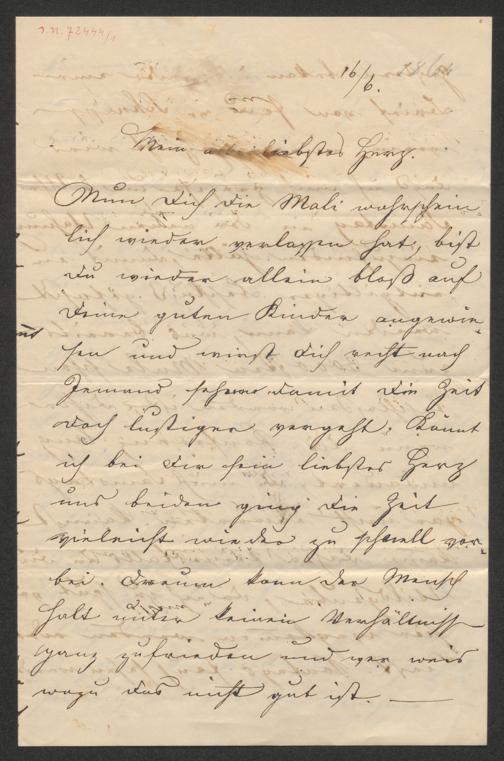 J.N. 72444/1
16/6. 1864
Mein allerliebstes Herz.
Nun Dich die Mali wahrschein
lich wieder verlassen hat, bist
Du wieder allein bloß auf
Deine guten Kinder angewie-
sen und wirst Dich recht nach
Jemand sehnen damit Dir die Zeit
doch lustiger vergeht. Könnt
ich bei Dir sein liebstes Herz
uns beiden ging die Zeit
vielleicht wieder zu schnell vor-
bei. Darum kann der Mensch
halt unter keinem Verhältniss
ganz zufrieden und wer weis
wozu das nicht gut ist. —